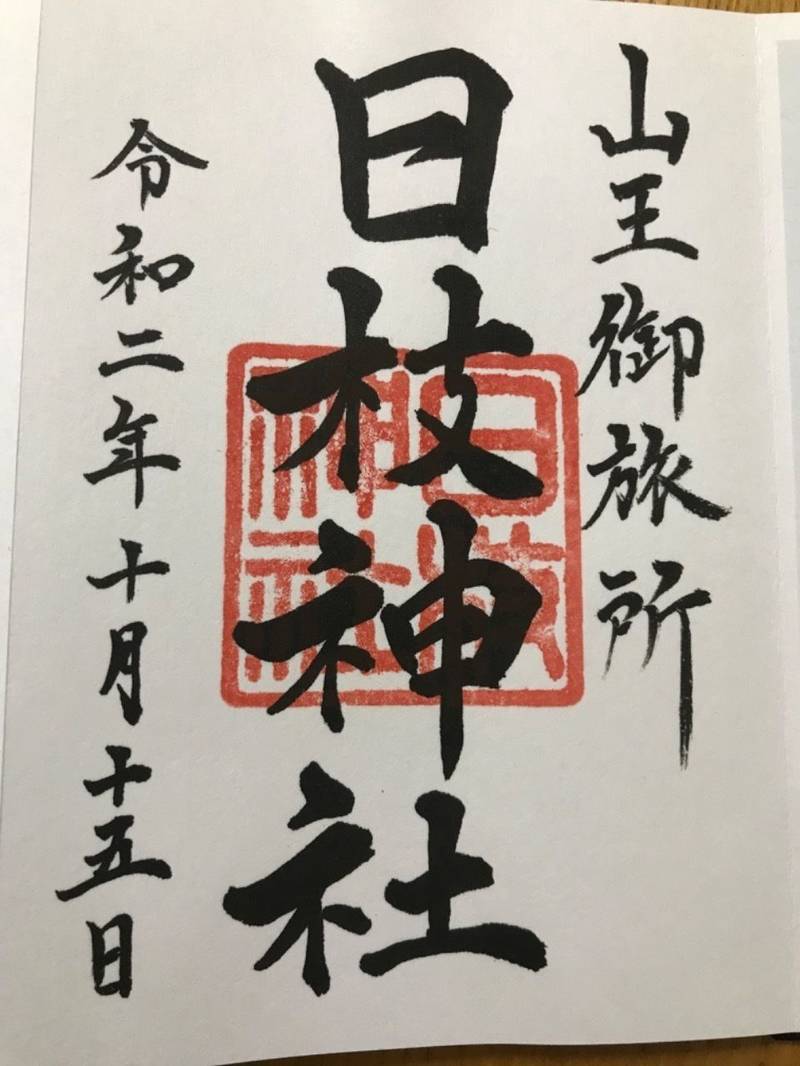 山王御旅所
日枝神社
日枝
神社
令和二年十月十五日